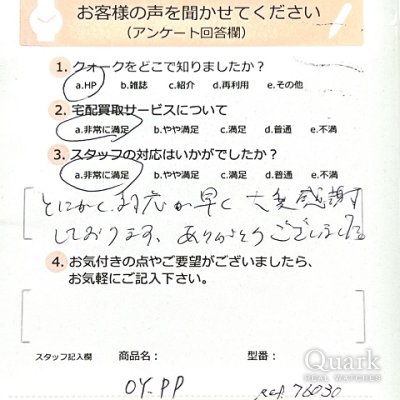 お客様の声を聞かせてください
（アンケート回答欄）
1. クォークをどこで知りましたか？
a.HP b.雑誌 c.紹介 d.再利用 e.その他
2. 宅配買取サービスについて
a.非常に満足 b.やや満足 c.満足 d.普通 e.不満
3. スタッフの対応はいかがでしたか？
a.非常に満足 b.やや満足 c.満足 d.普通 e.不満
とにかく対応が早く大変感謝
しております、ありがとうございました
4. お気付きの点やご要望がございましたら、
お気軽にご記入下さい。
スタッフ記入欄 商品名： 型番：
OY.PP ref. 76030
Quark
REAL WATCHES